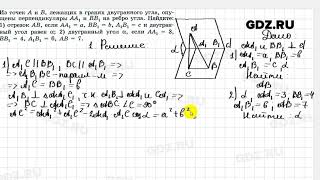 Из точек A и B, лежащих в гранях двугранного угла, опу-
щены перпендикуляры AA₁ и BB₁ на ребро угла. Найдите:
1) отрезок AB, если AA₁ = a, BB₁ = b, A₁B₁ = c и двугран-
ный угол равен α; 2) двугранный угол α, если AA₁ = 3,
BB₁ = 4, A₁B₁ = 6, AB = 7.
GDZ.RU
Дано
AA₁ и BB₁ ⊥ d
1) AA₁ = a, BB₁ = b
A₁B₁ = c α
Найти
AB
2) AA₁ = 3, BB₁ = 4
A₁B₁ = 6, AB = 7
Найти α
1. Решение
1) A₁C || BB₁, BC || A₁B₁ =>
=> A₁B₁BC - парал - м =>
=> A₁C = BB₁ = b
A₁B₁ ⊥ AA₁C, т.к. A₁B₁ ⊥ AA₁ и CA₁ =>
=> BC ⊥ AA₁C => ∠C = 90°
AC² = AA₁² + A₁C² - 2AA₁ A₁C cosα = a² + b²